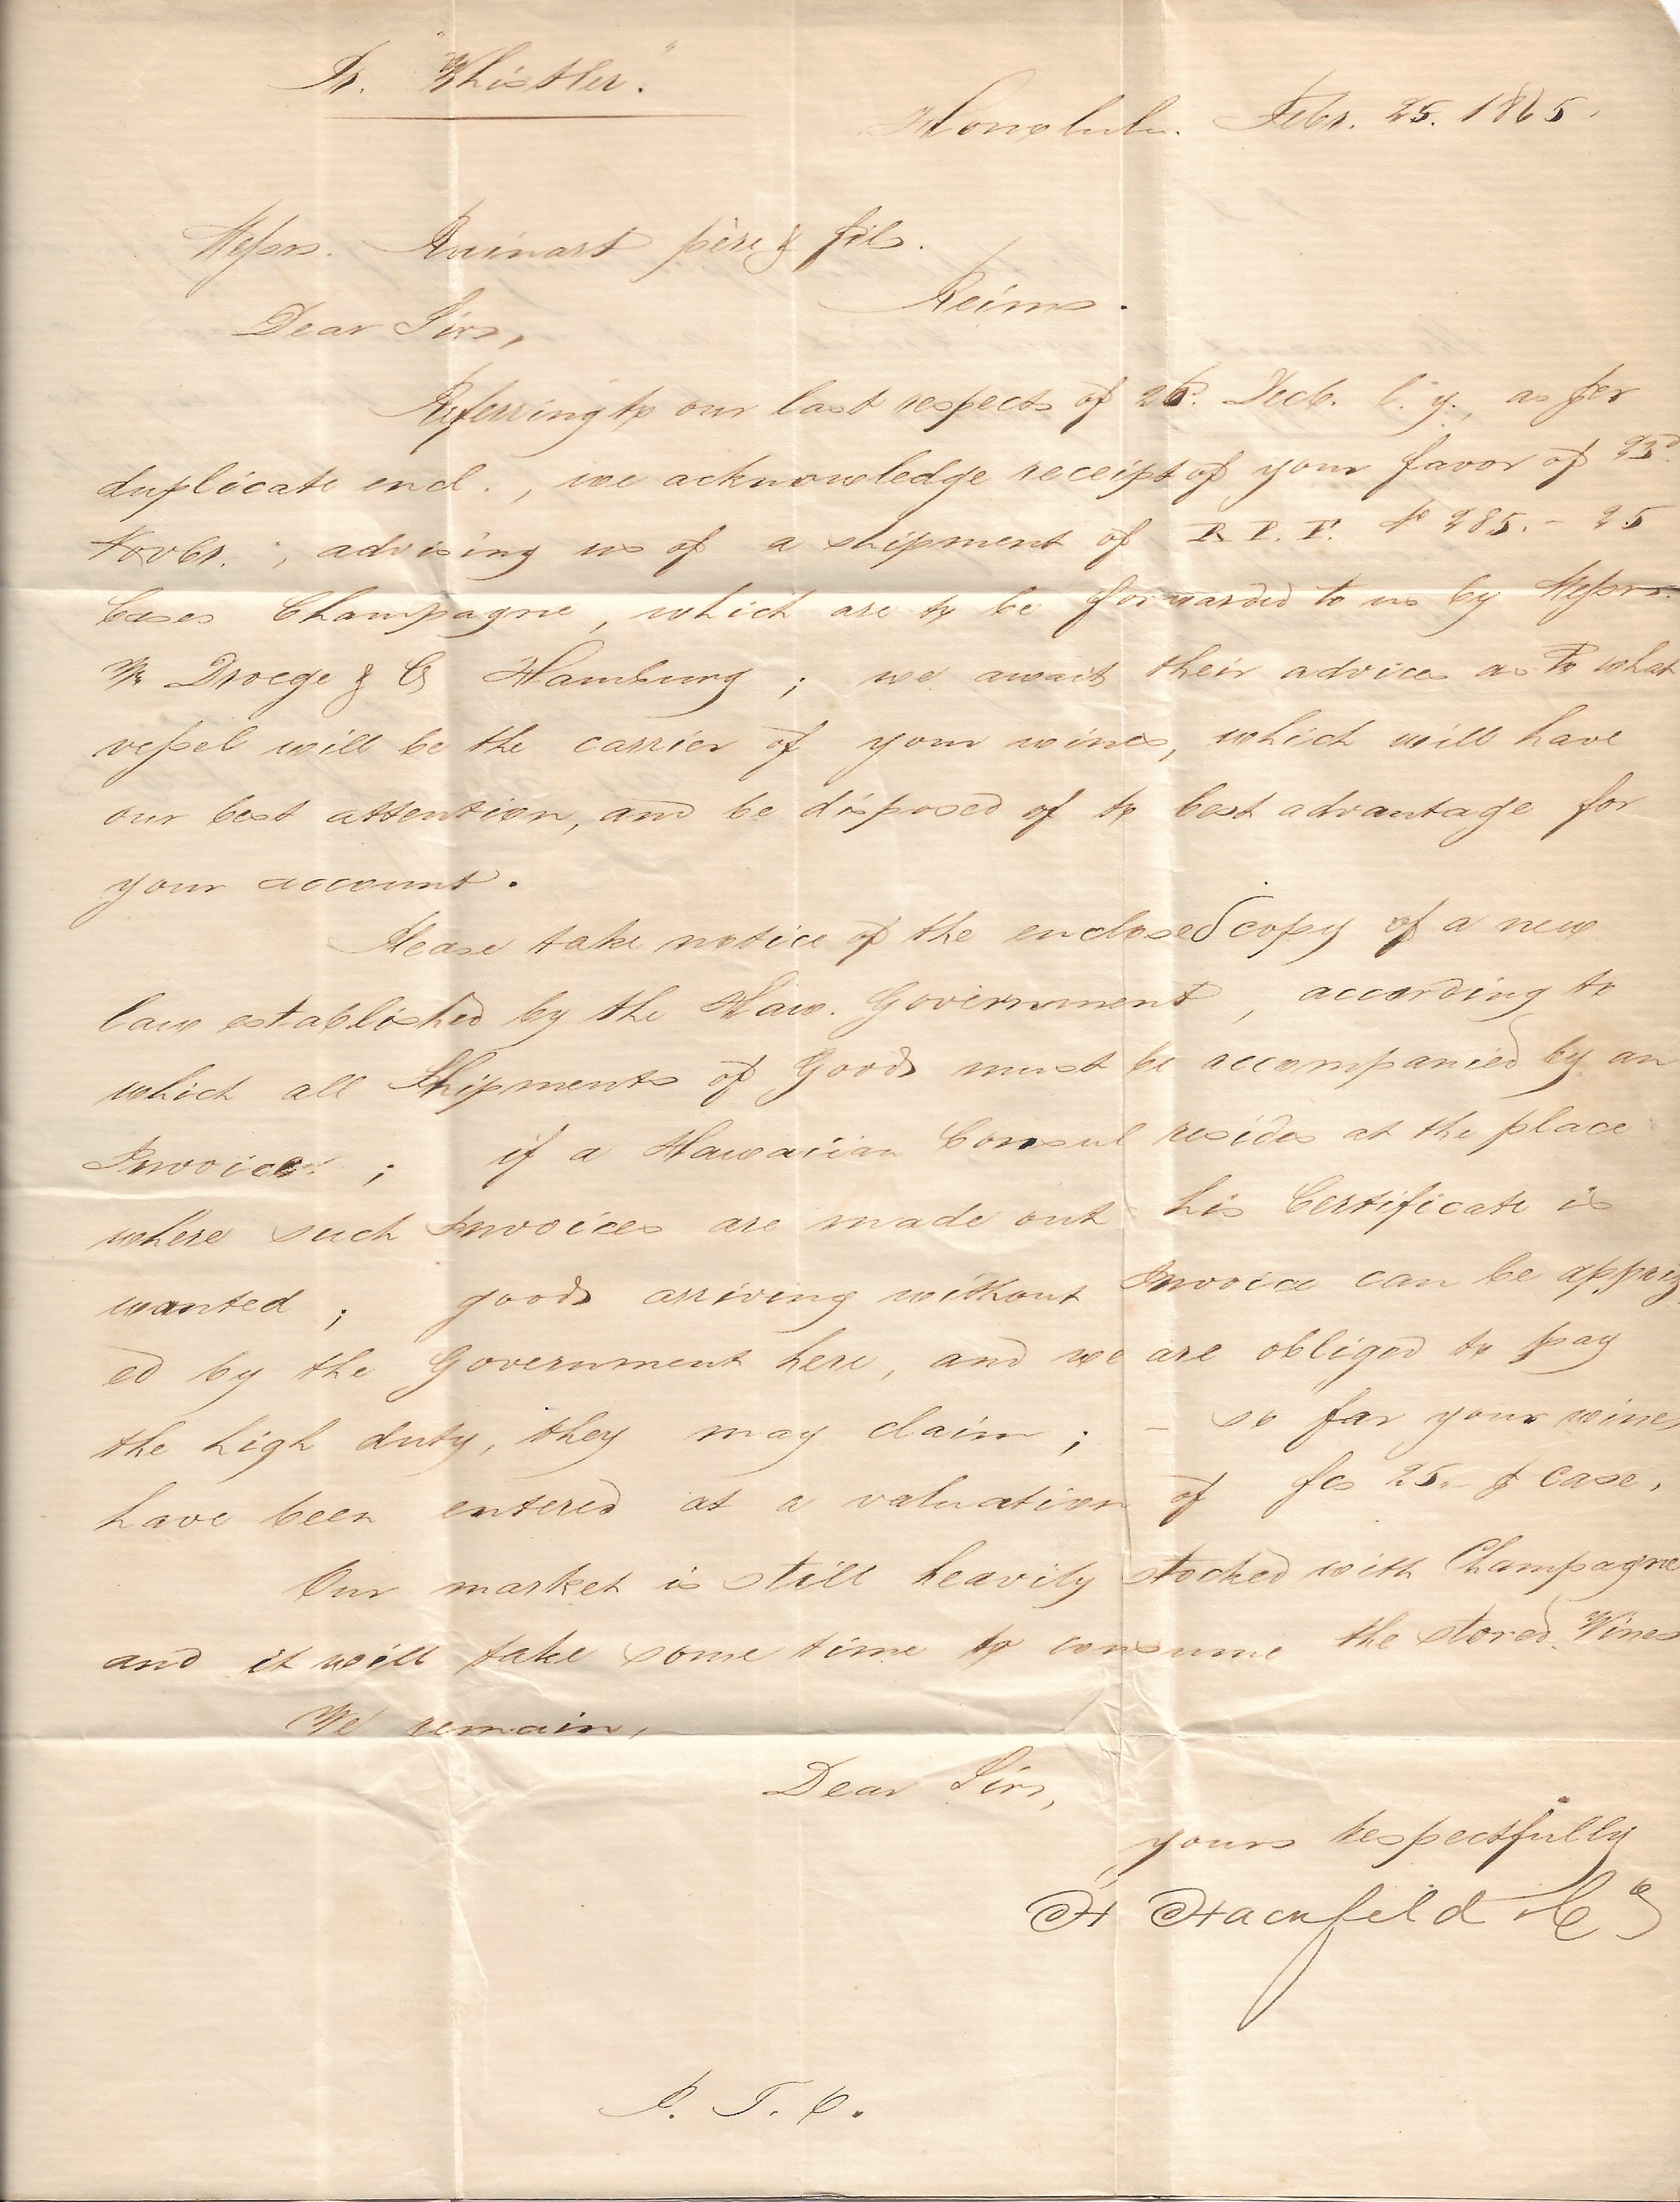 Pr. "Whistler."
Honolulu. Febr. 25. 1865.
Messrs. Ruinart père & fils.
Reims.
Dear Sirs,
Referring to our last respects of 26. Decb. l. y., as per
duplicate encl., we acknowledge receipt of your favor of 23d
Novbr.; advising us of a shipment of R. P. F. No 285. - 25
Cases Champagne, which are to be forwarded to us by Messrs.
Droege & Co Hamburg; we await their advices as to what
vessel will be the carrier of your wines, which will have
our best attention, and be disposed of to best advantage for
your account.
Please take notice of the enclosed copy of a new
law established by the Haw. Government, according to
which all Shipments of Goods must be accompanied by an
Invoice; if a Hawaiian Consul resides at the place
where such Invoices are made out his Certificate is
wanted; goods arriving without Invoice can be appriz
ed by the Government here, and we are obliged to pay
the high duty, they may claim; - so far your wines
have been entered at a valuation of fcs 25.- p case.
Our market is still heavily stocked with Champagne
and it will take some time to consume the stored Wines
We remain,
Dear Sirs,
yours respectfully
H Hackfeld & Co
P. T. O.